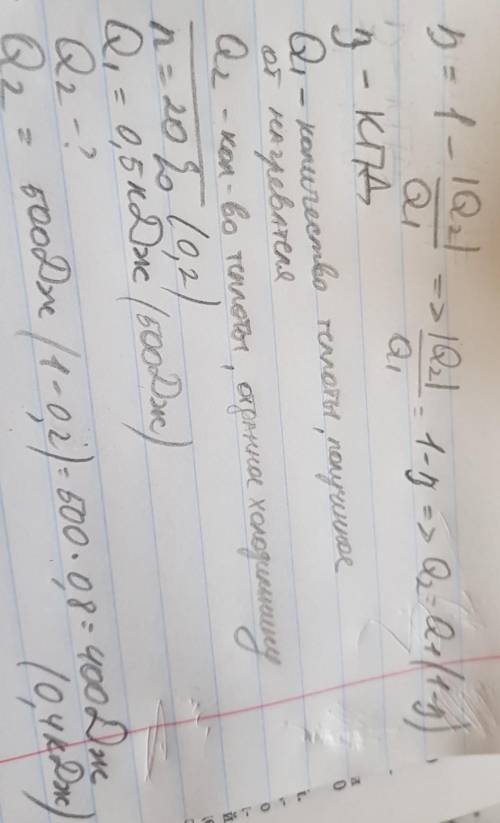 η = 1 - |Q₂|/Q₁ => |Q₂|/Q₁ = 1-η => Q₂ = Q₁(1-η)
η - КПД
Q₁ - количество теплоты, полученное
от нагревателя
Q₂ - кол-во теплоты, отданное холодильнику
η = 20% (0,2)
Q₁ = 0,5кДж (500Дж)
Q₂ - ?
Q₂ = 500Дж (1-0,2) = 500·0,8 = 400Дж
(0,4кДж)